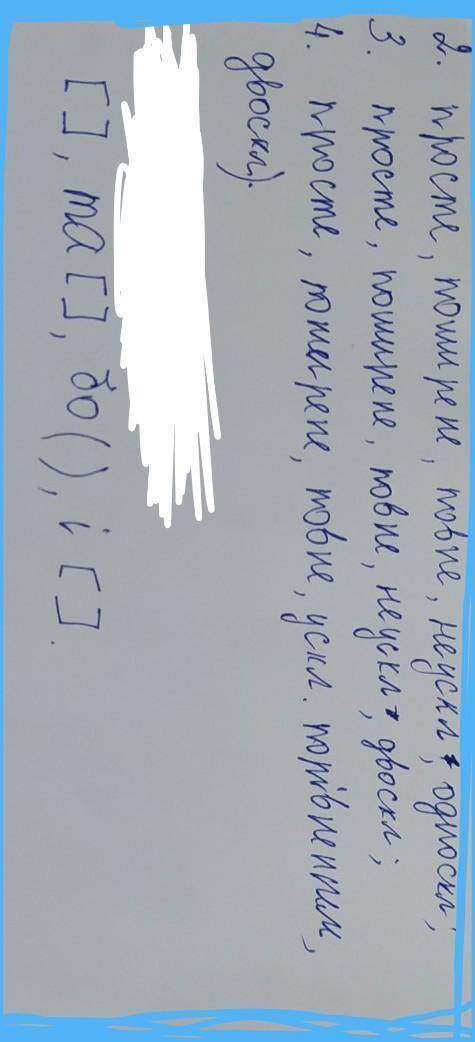 2. просте, поширене, повне, неускл, односкл;
3. просте, поширене, повне, неускл, двоскл;
4. просте, поширене, повне, ускл. порівненним,
двоскл).
[], та [], бо (), і [].